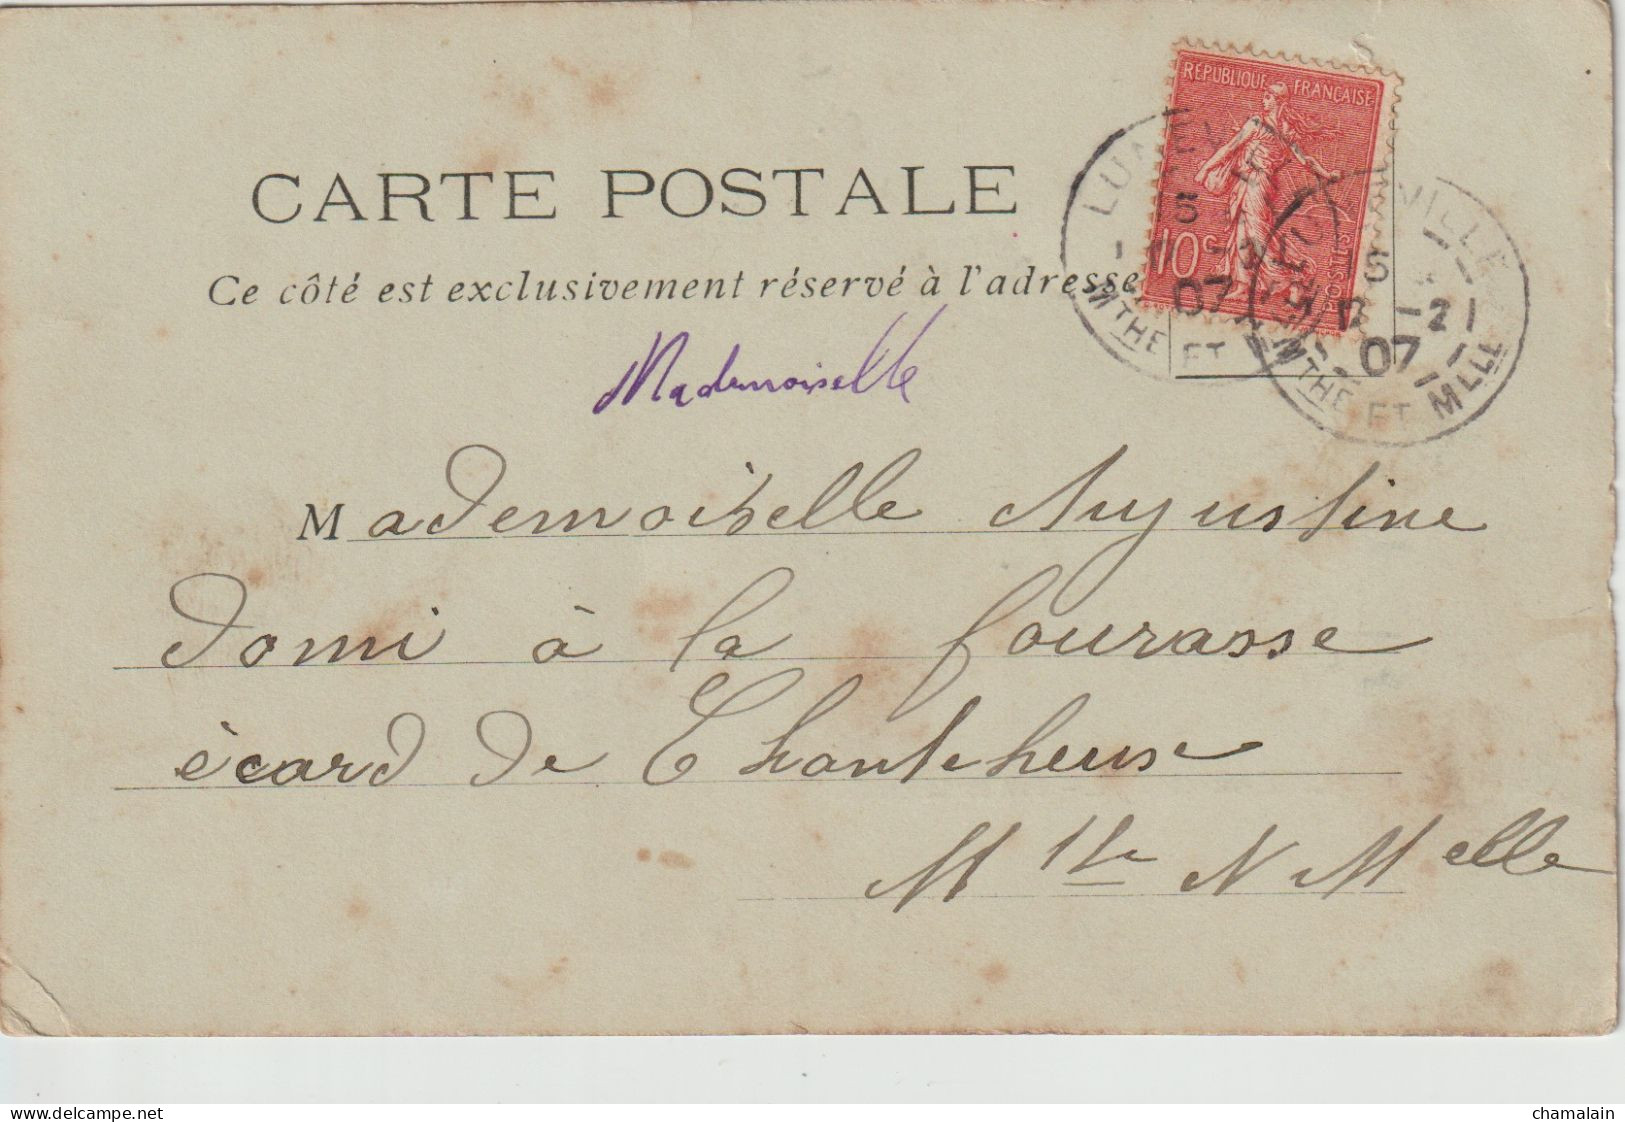 RÉPUBLIQUE FRANÇAISE
10 c POSTES
CARTE POSTALE
LUNEVILLE
5
07
MTHE ET
VILLE
-2
07
MTHE ET MLLE
Ce côté est exclusivement réservé à l'adresse
Mademoiselle
Mademoiselle Augustine
Domi à la fourasse
écard de Chanteheux
Mthe N Melle
www.delcampe.net
chamalain